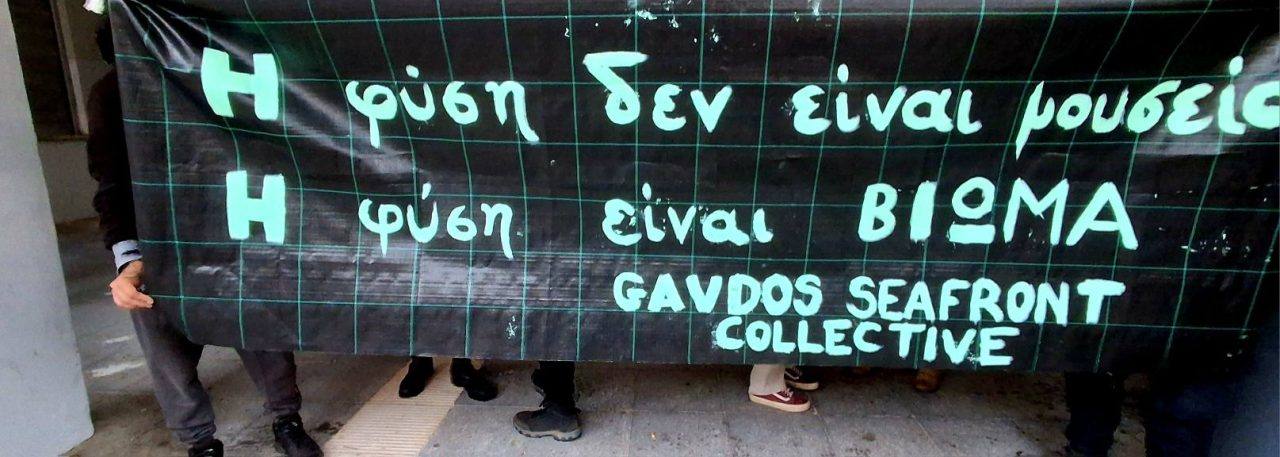 Η φύση δεν είναι μουσείο
Η φύση είναι ΒΙΩΜΑ
GAVDOS SEAFRONT
COLLECTIVE